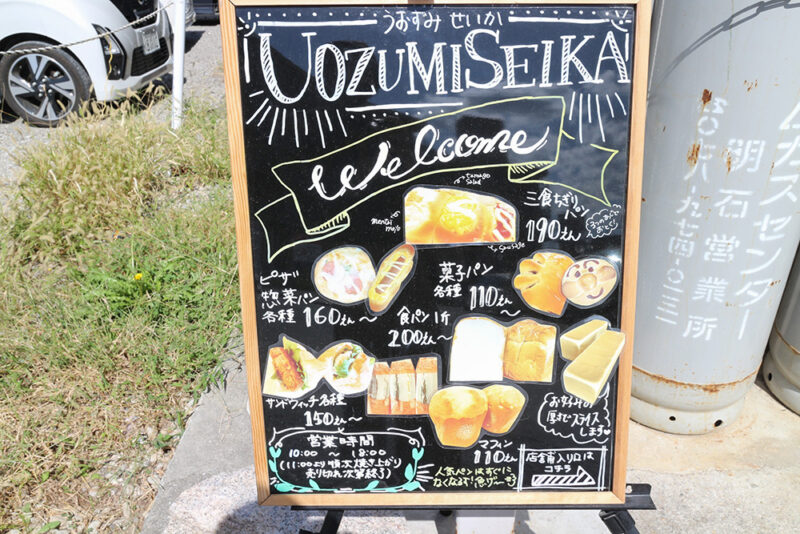 うおずみ せいか
UOZUMI SEIKA
Welcome
tamago salad
mentai mayo
sausage
三食ちぎりパン
190えん
3つのあじで
おとく!
ピザ
惣菜パン
各種 160えん〜
菓子パン
各種 110えん〜
食パン 1斤
200えん〜
サンドウィッチ各種
150えん〜
マフィン
110えん
お好みの
厚さでスライス
します
営業時間
10:00 〜 18:00
(11:00より順次焼き上がり
売り切れ次第終了)
人気パンはすぐに
なくなるよ!急げ〜
店舗入り口は
コチラ
ムガスセンター
明石営業所